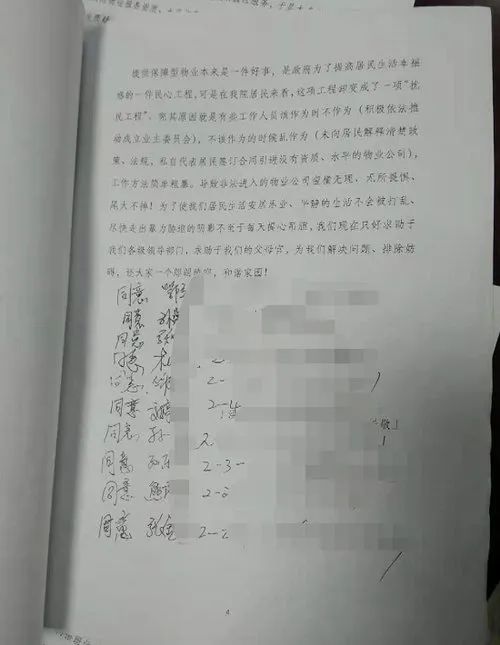 提供保障型物业本来是一件好事，是政府为了提高居民生活幸福
感的一件民心工程，可是在我院居民来看，这项工程却变成了一项“扰
民工程”。究其原因就是有些工作人员该作为时不作为（积极依法推
动成立业主委员会），不该作为的时候乱作为（未向居民解释清楚政
策、法规，私自代表居民签订合同引进没有资质、水平的物业公司），
工作方法简单粗暴。导致非法进入的物业公司蛮横无理、无所畏惧、
尾大不掉！为了使我们居民生活安居乐业、平静的生活不会被打乱、
尽快走出暴力胁迫的阴影不至于每天提心吊胆，我们现在只好求助于
我们各级领导部门，求助于我们的父母官，为我们解决问题、排除妨
碍，还大家一个朗朗晴空，和谐家园！
同意
同意
同意
同意
同意 2-
同意 2-4
同意 孙
同意 孙 2-3-
同意 熊 2-
同意 张金 2-
敬
4